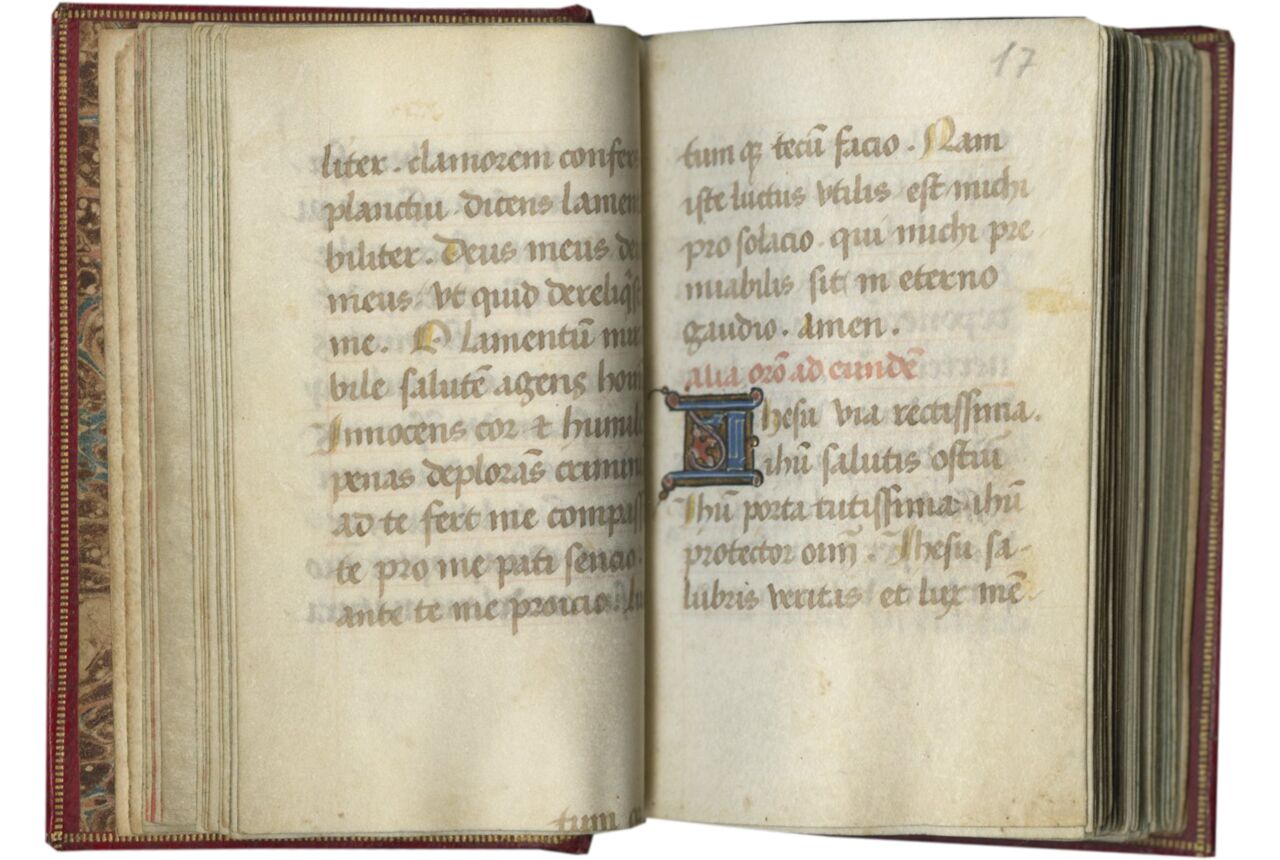 liter. clamorem confer
planctiu dicens lamen
biliter. Deus meus de
meus. vt quid
me. O lamentū mira
bile salutē agens homi
Innocens cor et humile
penas deplorās crimin
ad te fert me compass
te pro me pati sencio.
ante te me proicio. lu
tum
17
tum qz tecū facio. Nam
iste luctus vtilis est michi
pro solacio qui michi pre
miabilis sit in eterno
gaudio. amen.
alia orō ad eundē
Ihesu via rectissima.
ihū salutis ostiū
Ihū porta tutissima. ihū
protector oim̄. Ihesu sa-
lubris veritas et lux mē